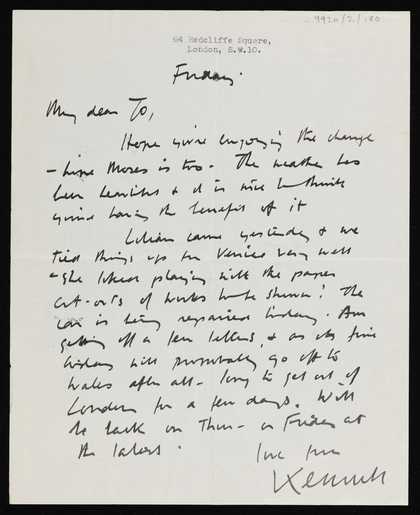 9920/2/180
64 Redcliffe Square,
London, S.W.10.
Friday.
My dear Jo,
Hope you're enjoying the change
- hope Moses is too - The weather has
been beautiful & it is nice to think
you're having the benefit of it
Lilian came yesterday & we
tied things up for Venice very well
- she liked playing with the paper
cut-outs of works to be shown! The
car is being repaired today. Am
getting off a few letters, & as it's fine
today will probably go off to
Wales after all - long to get out of
London for a few days. Will
be back on Thur - or Friday at
the latest.
love from
Kenneth